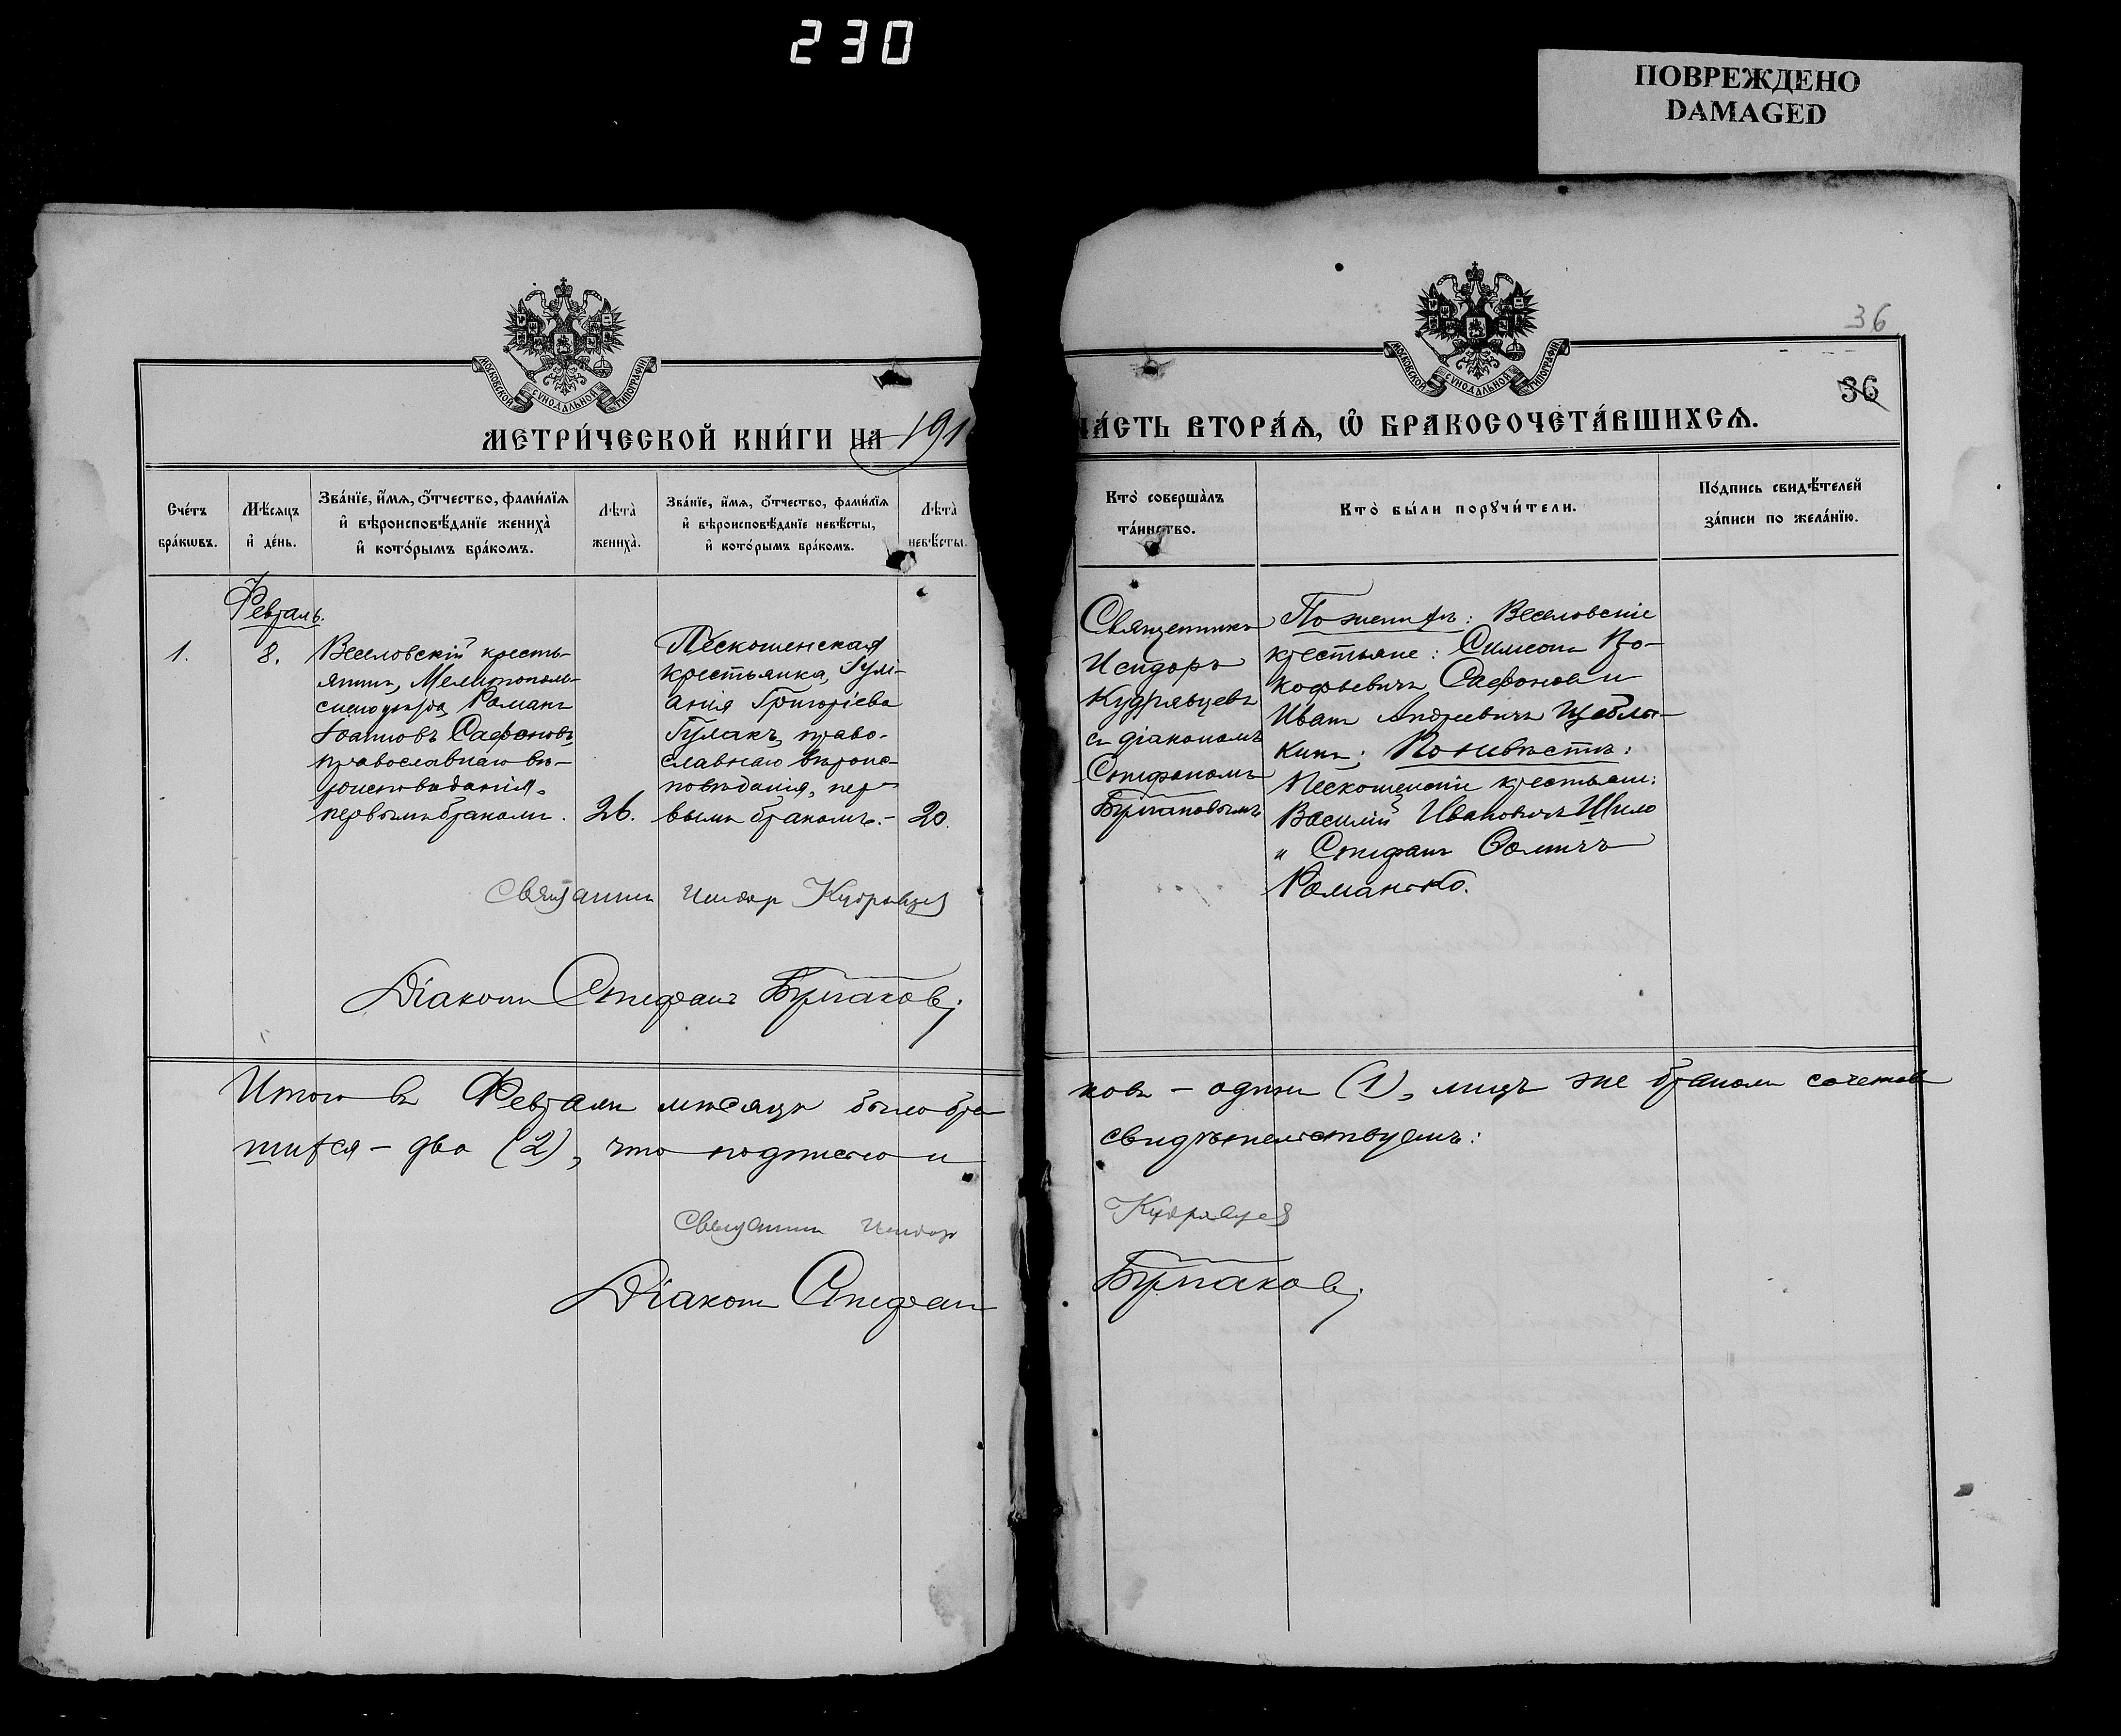 230
ПОВРЕЖДЕНО
DAMAGED
36
36
МОСКОВСКОЙ СУНОДАЛЬНОЙ ТИПОГРАФІИ
МОСКОВСКОЙ СУНОДАЛЬНОЙ ТИПОГРАФІИ
МЕТРИ́ЧЕСКОЙ КНИ́ГИ НА 191
ЧА́СТЬ ВТОРА́Ѧ, Ѽ БРАКОСОЧЕТА́ВШИХСѦ.
Сче́тъ
бра́кѡвъ.
Мѣ́сяцъ
и҆ де́нь.
Зва́нїе, и҆́мѧ, ѻ҆́тчество, фами́лїѧ
и҆ вѣроисповѣ́данїе жениха̀
и҆ кото́рымъ бра́комъ.
Лѣ́та̀
жениха̀.
Зва́нїе, и҆́мѧ, ѻ҆́тчество, фами́лїѧ
и҆ вѣроисповѣ́данїе невѣ́сты,
и҆ кото́рымъ бра́комъ.
Лѣ́та̀
невѣ́сты.
Кто̀ соверша́лъ
та́инство.
Кто̀ бы́ли порꙋчи́тели.
По́дпись свидѣ́телей
за́писи по жела́нїю.
Февраль.
1.
8.
Веселовскій кресть-
янинъ, Мелитополь-
скаго уѣзда, Романъ
Іоанновъ Сафоновъ,
православнаго вѣ-
роисповѣданія,
первымъ бракомъ.
26.
Пескошенская
крестьянка, Іулі-
анія Григоріева
Гулакъ, право-
славнаго вѣроис-
повѣданія, пер-
вымъ бракомъ.-
20.
Священникъ
Исидоръ
Кудрявцевъ
съ діакономъ
Стефаномъ
Бурлаковымъ
По женихѣ: Веселовскіе
крестьяне: Симеонъ Про-
кофьевичъ Сафоновъ и
Иванъ Андреевичъ Щеблы-
кинъ; По невѣстѣ:
Пескошенскіе крестьяне:
Василій Ивановичъ Шило
и Стефанъ Ѳомичъ
Романько.
Священникъ Исидор Кудрявцев
Діаконъ Стефанъ Бурлаковъ
Итого въ Февралѣ мѣсяцѣ было бра
ковъ - одинъ (1), лицъ же бракомъ сочетав
шихся - два (2), что подписью и
свидѣтельствуемъ:
Священникъ Исидор
Кудрявцев
Діаконъ Стефан
Бурлаковъ